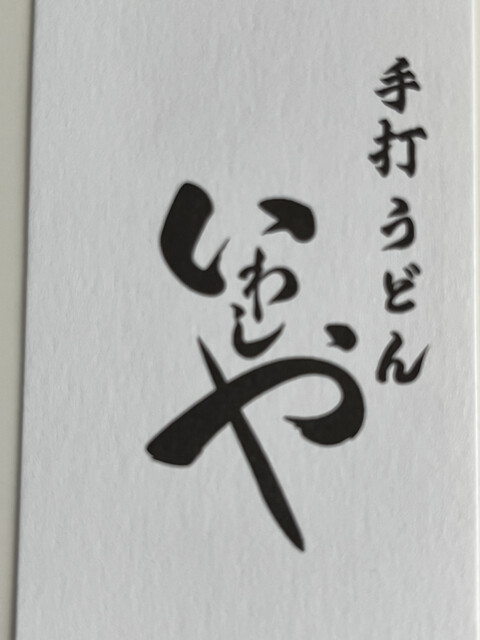 手打うどん
いわしや